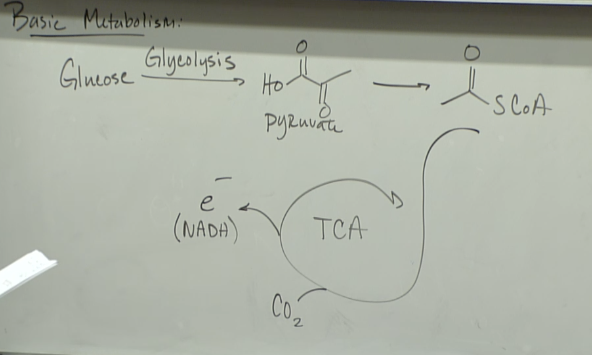 Basic Metabolism:
Glucose Glycolysis
HO O O
pyruvate
O SCoA
e⁻
(NADH)
TCA
CO₂